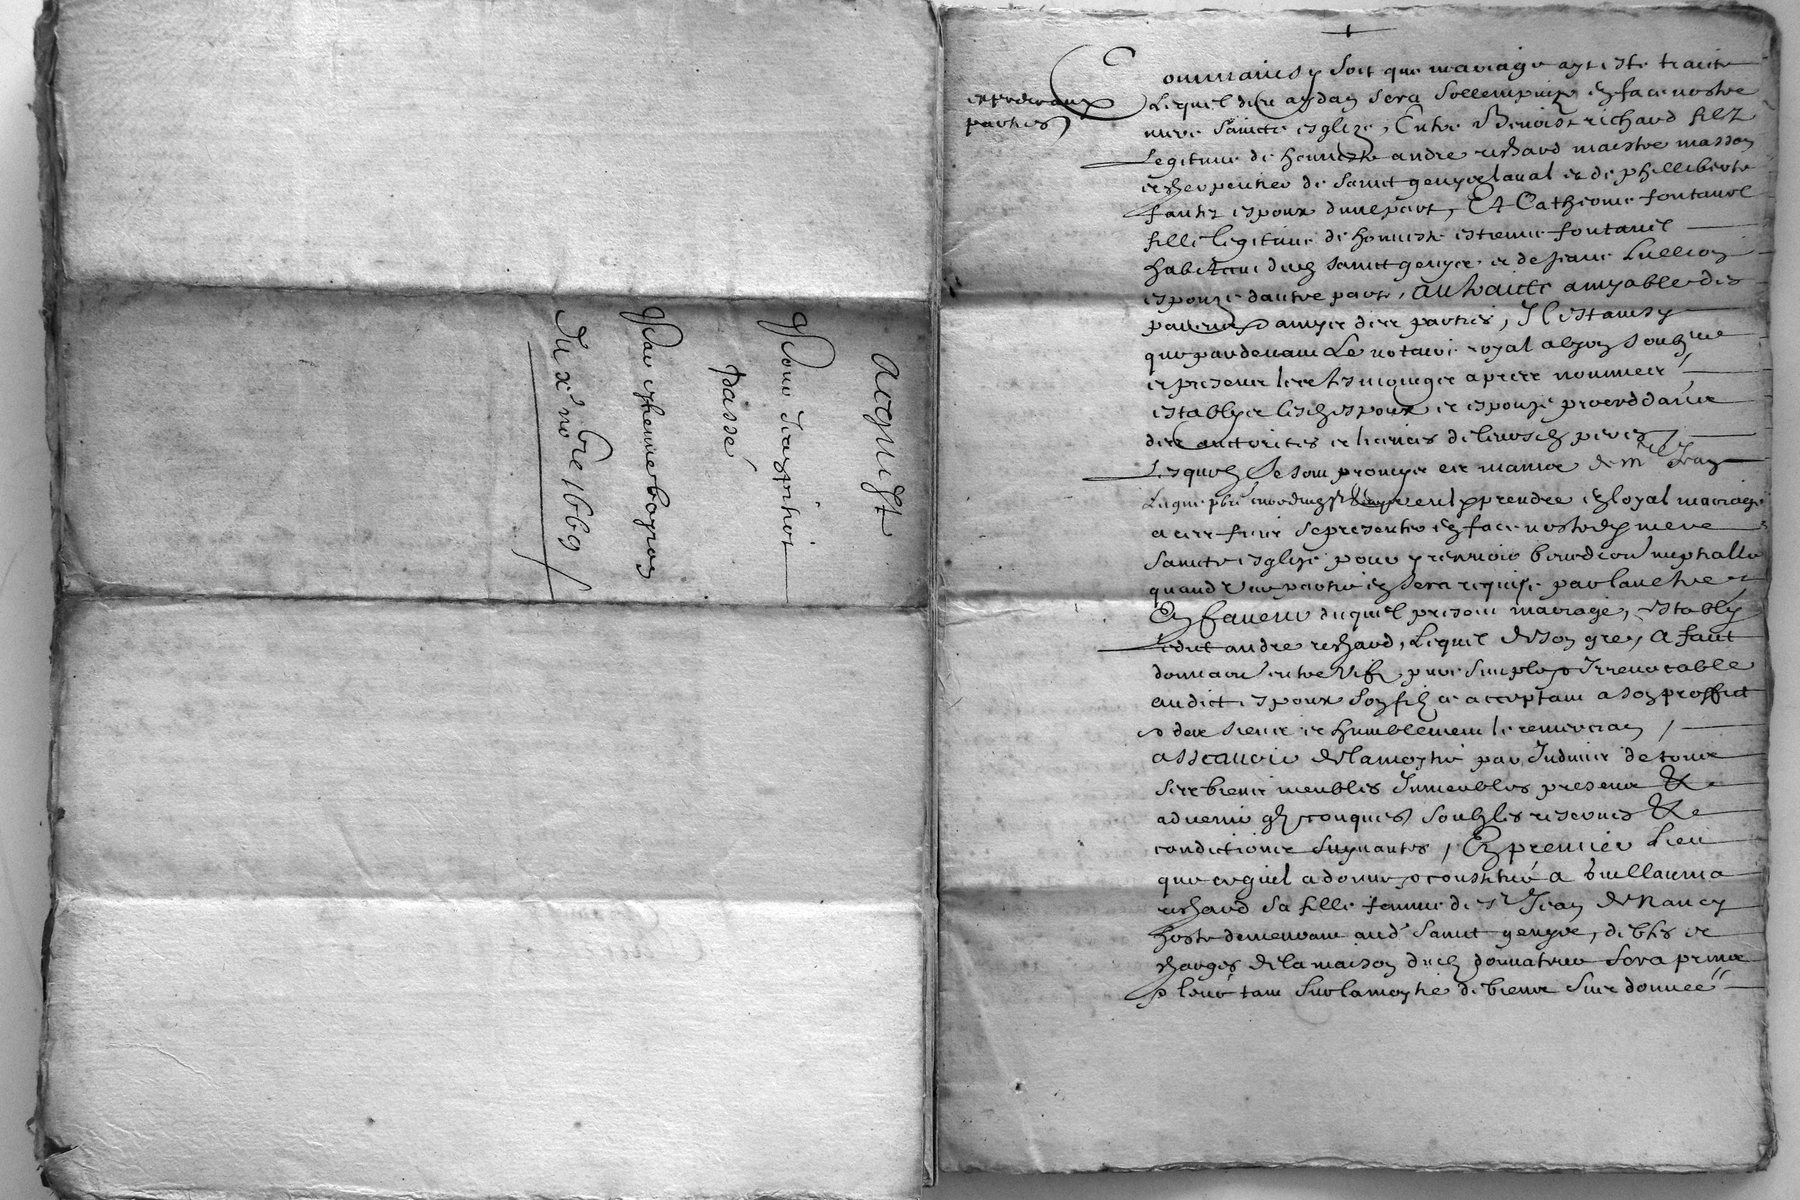 acquict
Pour Jean
passé
Par
Du xe nobre 1669
parties
Comme ainsy soit que mariage ayt esté traicté
Lequel dieu aydan sera sollempnizé en face nostre
mere saincte esglize, Entre Benoist richard filz
legitime de honneste andre richard maistre masson
et cherpentier de sainct genys laval et de phelliberte
espoux dune part, Et Catherine fontanel
fille legitime de honneste estienne fontanel
habitant dud sainct genys et de Jeane
espouze dautre part, au traicté amyable des
parens et amys des parties, Il est ainsy
que pardevant le notaire royal a lyon soubzne
et presents les tesmoingtz apres nommez,
establys lesd espoux et espouze proceddans
des auctorites et licences de leursd peres,
Lesquels se sont promys es mains de mre Jean
prendre en loyal mariage
a ces fins se presenter en face nostred mere
saincte esglize pour y recevoir benediction nuptialle
quand une partie en sera requise par lautre
En faveur duquel present mariage, estably
ledict andre richard, Lequel de son gre, a faict
donnation entre vifz pure simple et Irrevocable
audict espoux son filz ce acceptant a son proffict
et des siens et humblement le remerciant,
asscavoir de la moytie par Indivis de tous
ses biens meubles Immeubles presens &
advenir qlzconques soubz les reserves &
condictions suyvantes, En premier lieu
que ce quil a donné et constitué a guillauma
richard sa fille femme de sr Jean de nancy
hoste demeurant aud sainct genys, debtes et
charges de la maison dud donnateur sera prins
et levé tant sur la moytie des biens sus donnee